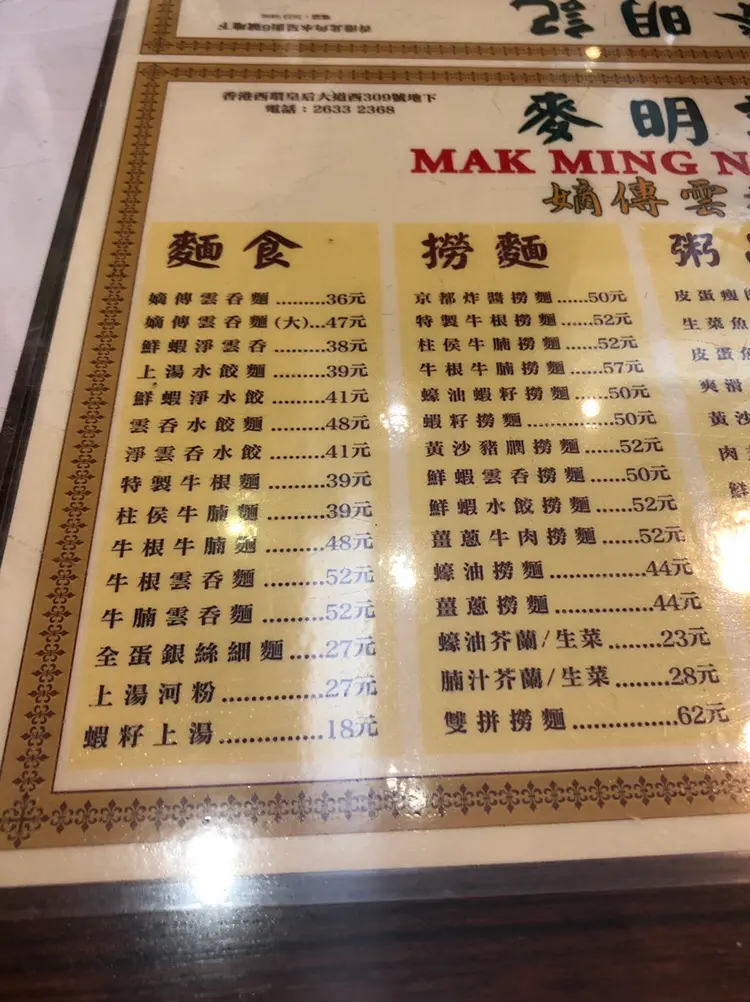 香港西環皇后大道西309號地下
電話：2633 2368
麥明
MAK MING N
嫡傳雲
麵食
嫡傳雲吞麵.........36元
嫡傳雲吞麵(大)...47元
鮮蝦淨雲吞.........38元
上湯水餃麵.........39元
鮮蝦淨水餃.........41元
雲吞水餃麵.........48元
淨雲吞水餃.........41元
特製牛根麵.........39元
柱侯牛腩麵.........39元
牛根牛腩麵.........48元
牛根雲吞麵.........52元
牛腩雲吞麵.........52元
全蛋銀絲細麵.....27元
上湯河粉...............27元
蝦籽上湯...............18元
撈麵
京都炸醬撈麵......50元
特製牛根撈麵......52元
柱侯牛腩撈麵......52元
牛根牛腩撈麵......57元
蠔油蝦籽撈麵......50元
蝦籽撈麵...............50元
黃沙豬膶撈麵......52元
鮮蝦雲吞撈麵......50元
鮮蝦水餃撈麵......52元
薑蔥牛肉撈麵......52元
蠔油撈麵...............44元
薑蔥撈麵...............44元
蠔油芥蘭/生菜........23元
腩汁芥蘭/生菜........28元
雙拼撈麵...............62元
粥
皮蛋瘦
生菜魚
皮蛋魚
爽滑
黃沙
肉
鮮